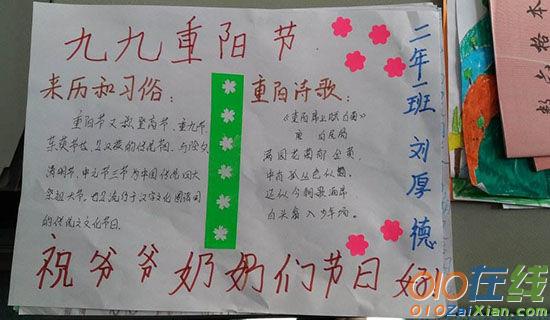 九九重阳节
来历和习俗：
重阳节又称登高节、重九节、
茱萸节
清明节、中元节三节
祭祖大节。也是流行于汉字文化圈诸国
的传统文化节日。
重阳诗歌：
《重阳席上赋白菊》
唐 白居易
满园花菊郁金黄，
中有孤丛色似霜。
还似今朝歌酒席
白头翁入少年场。
二年一班 刘厚德
祝爷爷奶奶们节日好
010在线
010ZaiXian.com